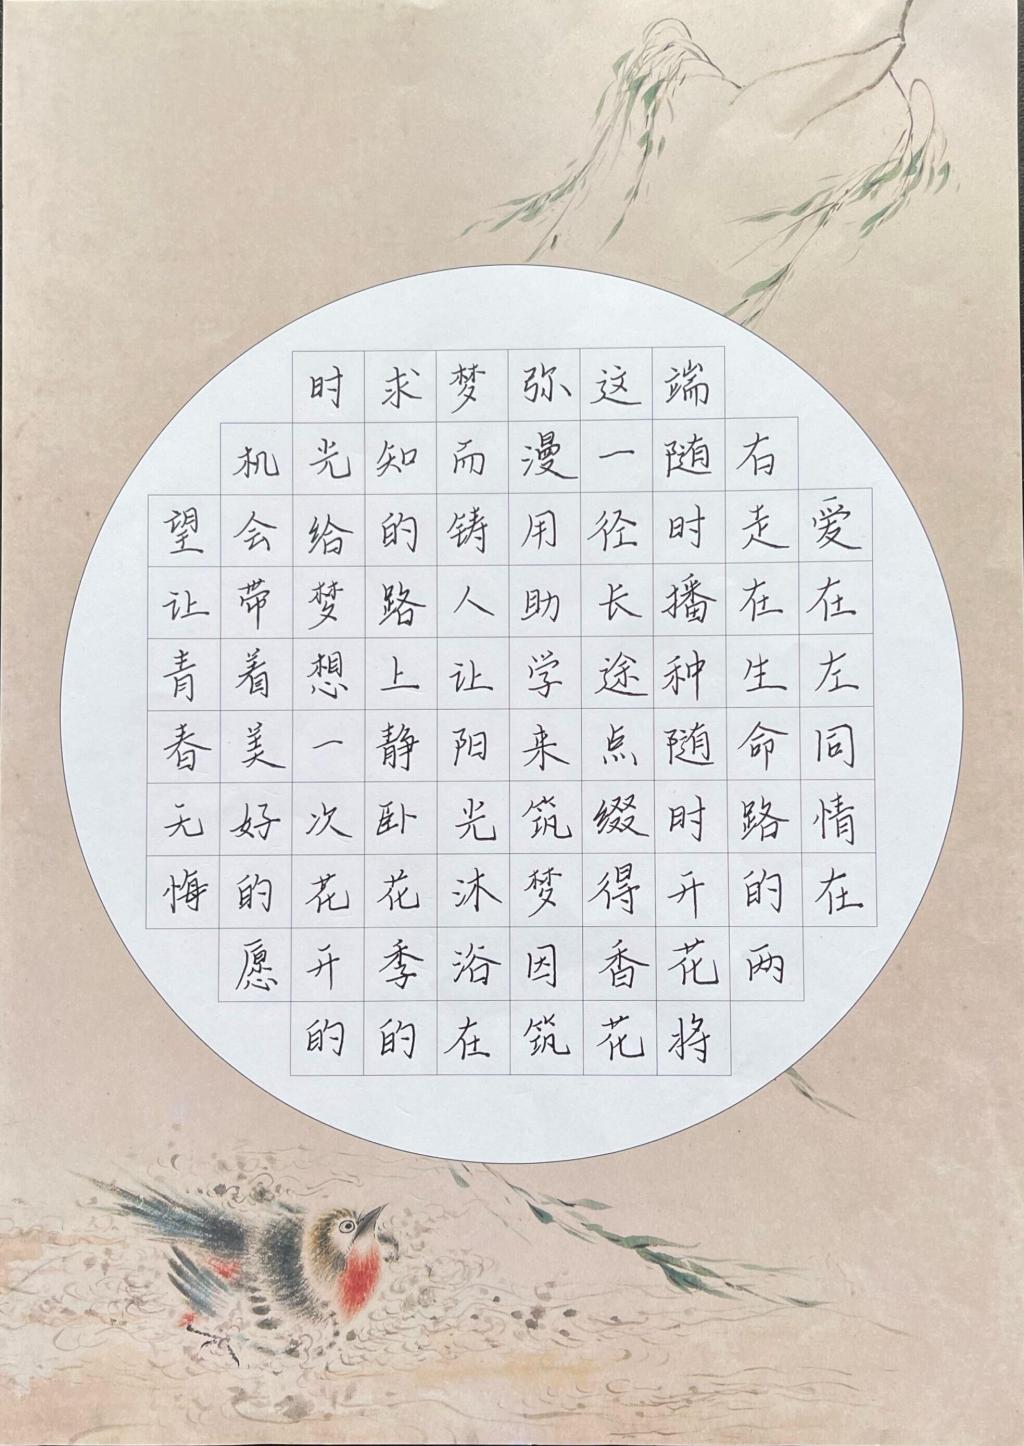 爱在左同情在
右走在生命路的两
端随时播种随时开花将
这一径长途点缀得香花
弥漫用助学来筑梦因筑
梦而铸人让阳光沐浴在
求知的路上静卧花季的
时光给梦想一次花开的
机会带着美好的愿
望让青春无悔